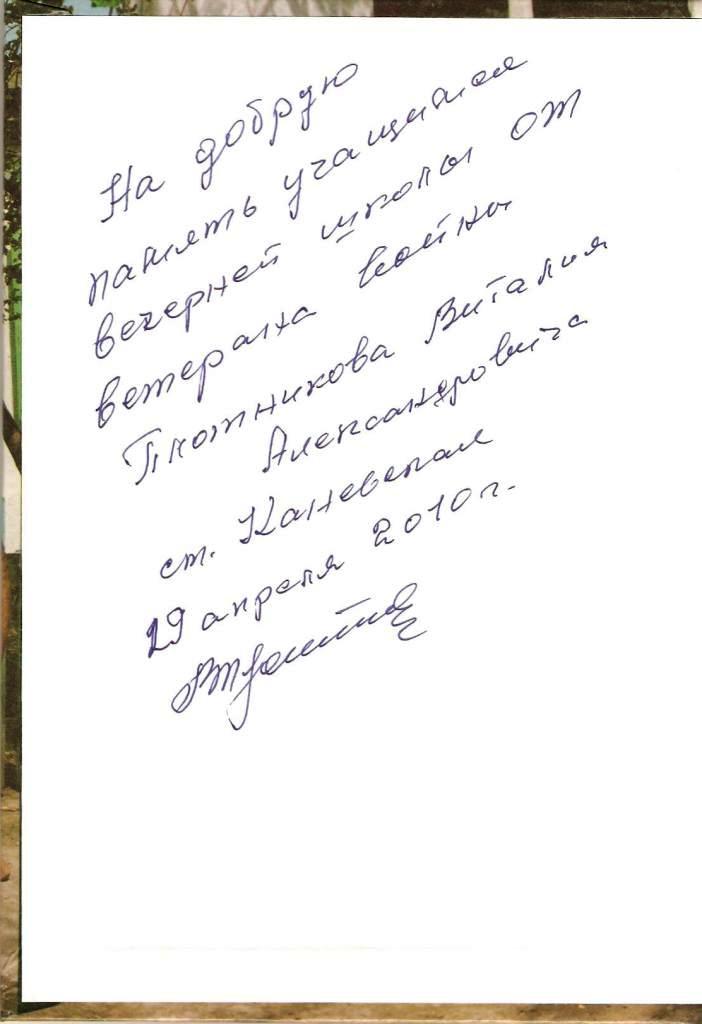 На добрую
память учащимся
вечерней школы от
ветерана войны
Плотникова Виталия
Александровича
ст. Каневская
29 апреля 2010 г.